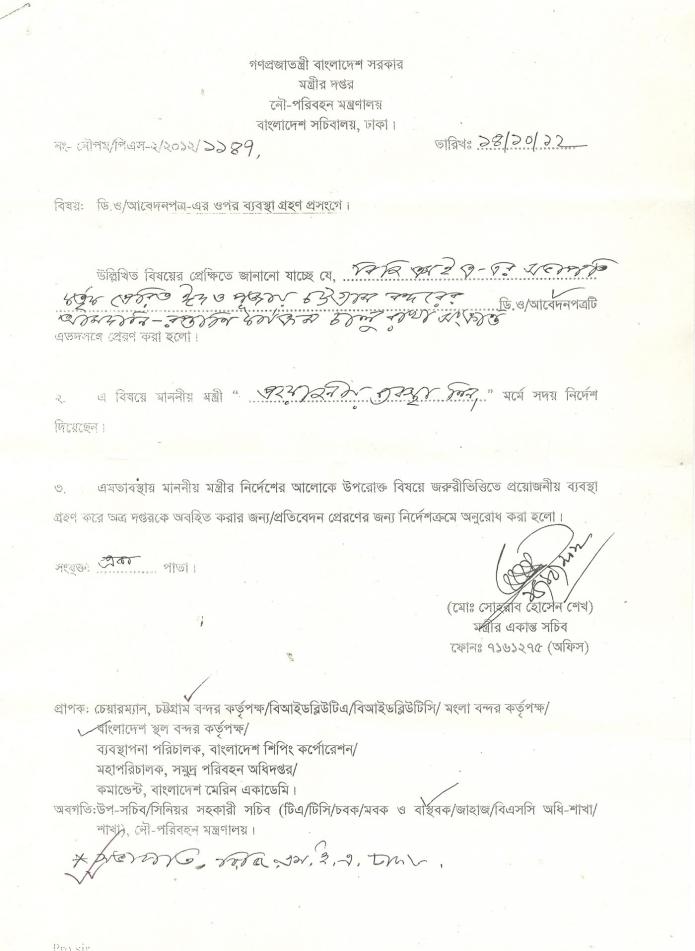 গণপ্রজাতন্ত্রী বাংলাদেশ সরকার
মন্ত্রীর দপ্তর
নৌ-পরিবহন মন্ত্রণালয়
বাংলাদেশ সচিবালয়, ঢাকা।
নং- নৌপম/পিএস-২/২০১২/১১৪৭, তারিখঃ ১৪/১০/১২
বিষয়: ডি.ও/আবেদনপত্র-এর ওপর ব্যবস্থা গ্রহণ প্রসংগে।
উল্লিখিত বিষয়ের প্রেক্ষিতে জানানো যাচ্ছে যে, সভাপতি
কর্তৃক প্রেরিত ঈদ ও পূজায় চট্টগ্রাম বন্দরের ডি.ও/আবেদনপত্রটি
আমদানি-রপ্তানি কার্যক্রম চালু রাখা সংক্রান্ত
এতদসঙ্গে প্রেরণ করা হলো।
২. এ বিষয়ে মাননীয় মন্ত্রী “ প্রয়োজনীয় ব্যবস্থা নিন, ” মর্মে সদয় নির্দেশ
দিয়েছেন।
৩. এমতাবস্থায় মাননীয় মন্ত্রীর নির্দেশের আলোকে উপরোক্ত বিষয়ে জরুরীভিত্তিতে প্রয়োজনীয় ব্যবস্থা
গ্রহণ করে অত্র দপ্তরকে অবহিত করার জন্য/প্রতিবেদন প্রেরণের জন্য নির্দেশক্রমে অনুরোধ করা হলো।
সংযুক্ত: এক পাতা।
(মোঃ সোহরাব হোসেন শেখ)
মন্ত্রীর একান্ত সচিব
ফোনঃ ৭১৬১২৭৫ (অফিস)
প্রাপক: চেয়ারম্যান, চট্টগ্রাম বন্দর কর্তৃপক্ষ/বিআইডব্লিউটিএ/বিআইডব্লিউটিসি/ মংলা বন্দর কর্তৃপক্ষ/
বাংলাদেশ স্থল বন্দর কর্তৃপক্ষ/
ব্যবস্থাপনা পরিচালক, বাংলাদেশ শিপিং কর্পোরেশন/
মহাপরিচালক, সমুদ্র পরিবহন অধিদপ্তর/
কমান্ডেন্ট, বাংলাদেশ মেরিন একাডেমি।
অবগতি:উপ-সচিব/সিনিয়র সহকারী সচিব (টিএ/টিসি/চবক/মবক ও বাস্থবক/জাহাজ/বিএসসি অধি-শাখা/
শাখা), নৌ-পরিবহন মন্ত্রণালয়।
* সভাপতি, বিজি এম.ই.এ